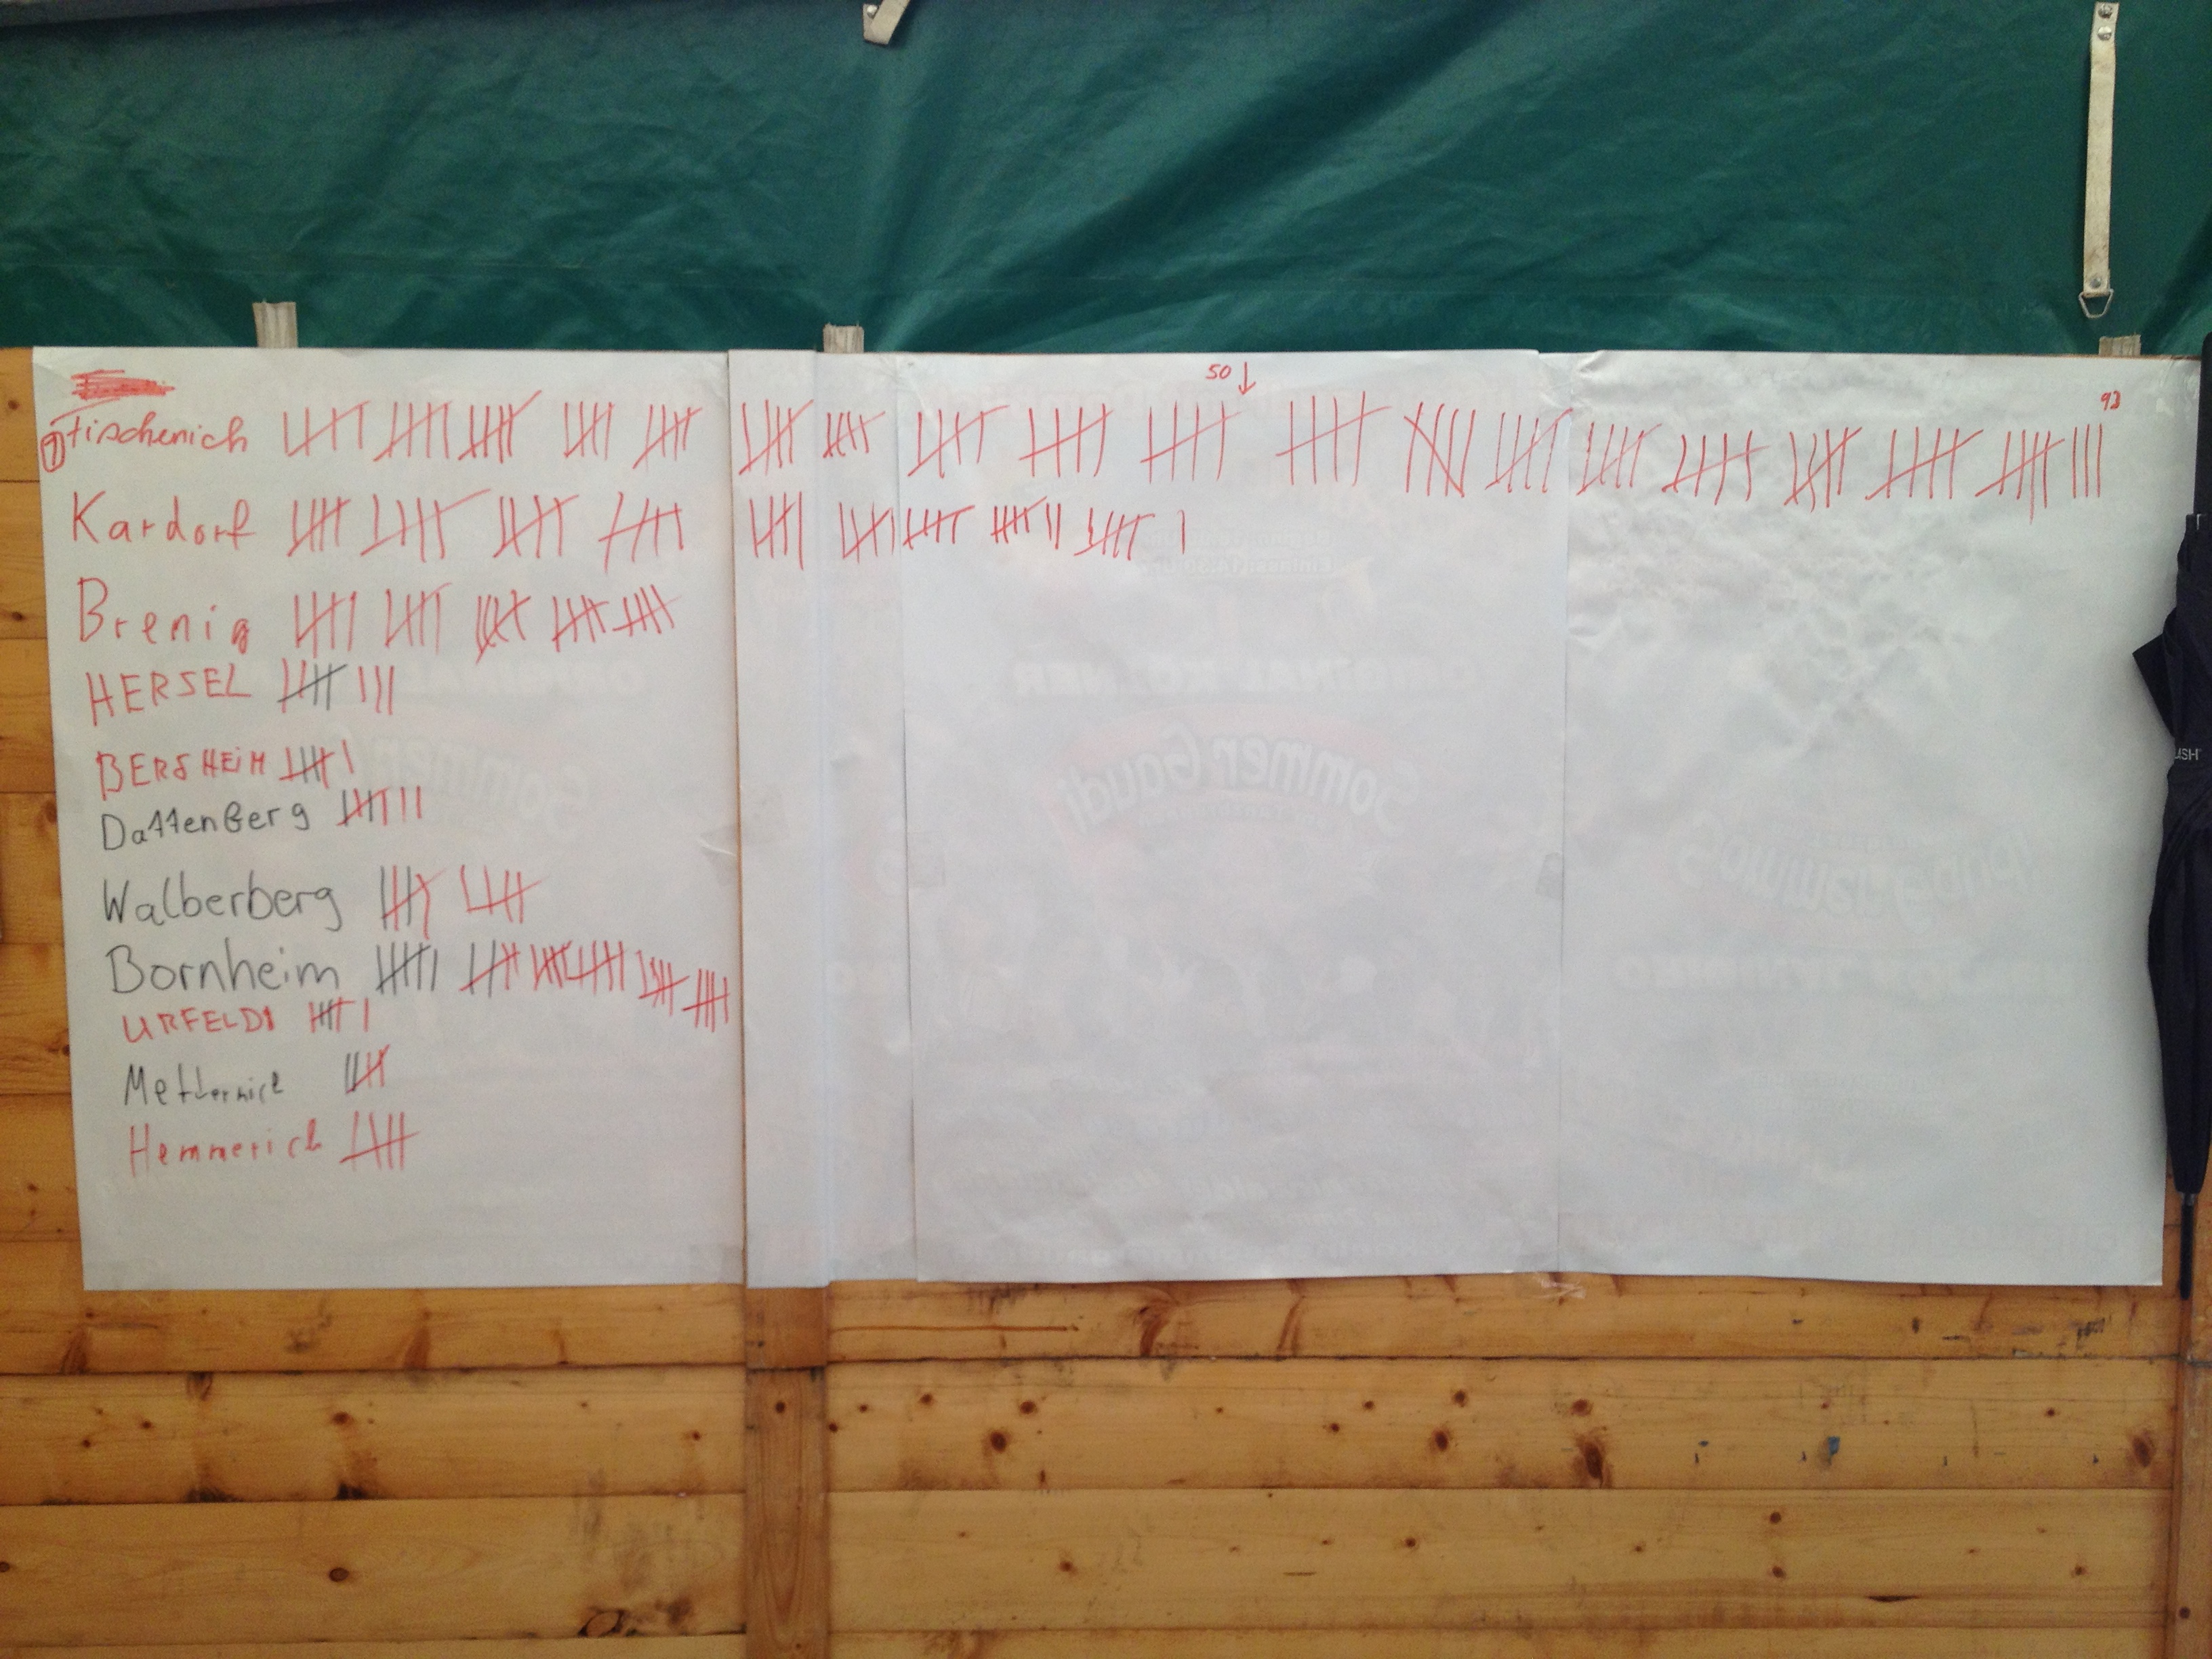 50 ↓
93
Fischenich
Kardorf
Brenig
HERSEL
BERSHEIM
Dattenberg
Walberberg
Bornheim
URFELD
Metternich
Hemmerich
Sommer Gaudi
Sommer Gaudi